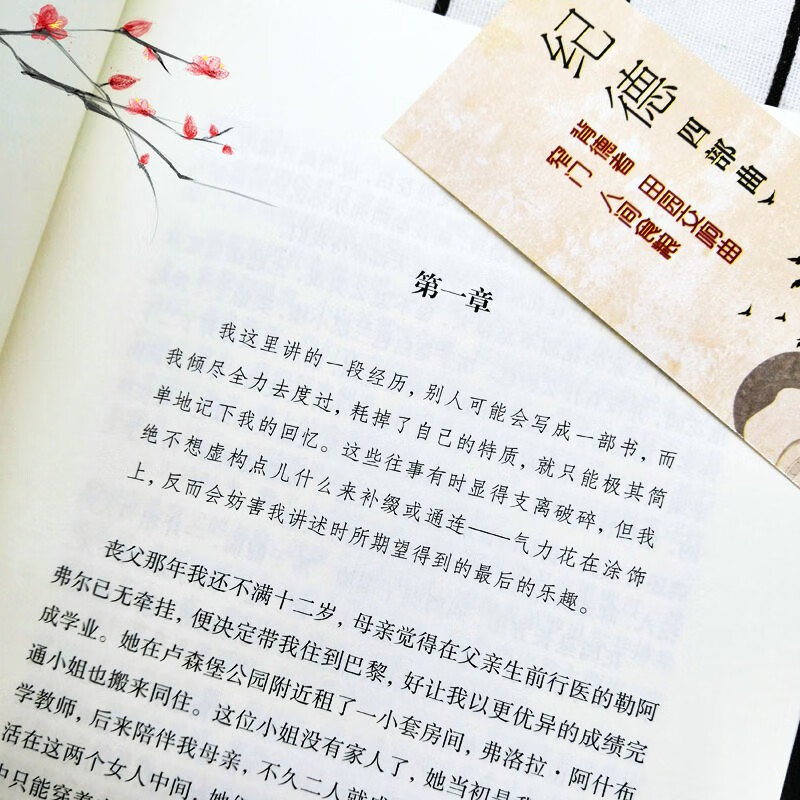 纪德四部曲
背德者 田园交响曲
窄门 人间食粮
第一章
我这里讲的一段经历，别人可能会写成一部书，而
我倾尽全力去度过，耗掉了自己的特质，就只能极其简
单地记下我的回忆。这些往事有时显得支离破碎，但我
绝不想虚构点儿什么来补缀或通连——气力花在涂饰
上，反而会妨害我讲述时所期望得到的最后的乐趣。
丧父那年我还不满十二岁，母亲觉得在父亲生前行医的勒阿
弗尔已无牵挂，便决定带我住到巴黎，好让我以更优异的成绩完
成学业。她在卢森堡公园附近租了一小套房间，弗洛拉·阿什布
通小姐也搬来同住。这位小姐没有家人了，她当初是我
学教师，后来陪伴我母亲，不久二人就成
活在这两个女人中间，她
中只能穿着